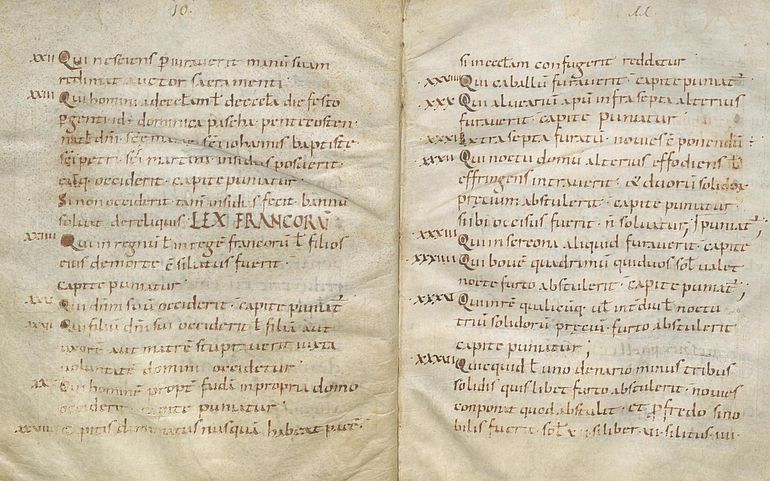 10.
XXII Qui nesciens p̄iurauerit manū suam
redimat auctor sacramenti·
XXIII Qui homini ad eccłam ł de eccła die festo
pgenti id· dominica pascha pentecosten
natł dn̄i· sc̄e mariae sc̄i iohannis baptiste
sc̄i petri· sc̄i martini insidias posuerit·
eūq· occiderit· capite puniatur·
Si non occiderit tam̄ insidias fecit bannū
soluat de reliquis· LEX FRANCORŪ
XXIIII Qui in regnū ł in regē francorū ł filios
eius de morte c̄siliatus fuerit·
capite puniatur
XXV Qui dn̄m suū occiderit· capite puniat̄
XXVI Qui filiū dn̄i sui occiderit ł filiā aut
uxorē aut matrē stuprauerit iuxta
uoluntatē domini occidetur
XXVII Qui hominē propt̄ faidā in propria domo
occiderit· capite puniatur·
XXVIII Capitis damnatus nusquā habeat pacē·
11
si in eccłam confugerit reddatur
XXVIIII Qui caballū furauerit· capite puniat̄
XXX Qui aluearium apū infra septa alterius
furauerit· capite puniatur·
XXXI Extra septa furatū· nouies ē ponendū·
XXXII Qui noctu domū alterius effodiens ł
effringens intrauerit· & duorū solidor̄
precium abstulerit· capite puniatur·
si ibi occisus fuerit· n̄ soluatur; puniat̄;
XXXIII Qui in screona aliquid furauerit· capite
XXXIIII Qui bouē quadrimū qui duos soł ualet
nocte furto abstulerit· capite puniat̄;
XXXV Qui in rē qualicūq· ut in die ł noctu
triū solidorū precii furto abstulerit
capite puniatur;
XXXVI Quicquid ł uno denario minus tribus
solidis quis libet furto abstulerit· nouies
conponat quod abstulit· et p̄ fredo si no
bilis fuerit· soł x· si liber· vi· si litus· iiii·